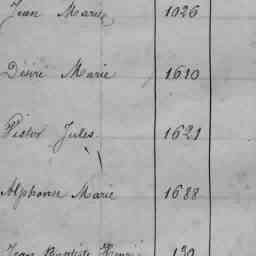 Jean Marie 1026
Désiré Marie 1610
Victor Jules 1621
Alphonse Marie 1688
Jean Baptiste Henri 130